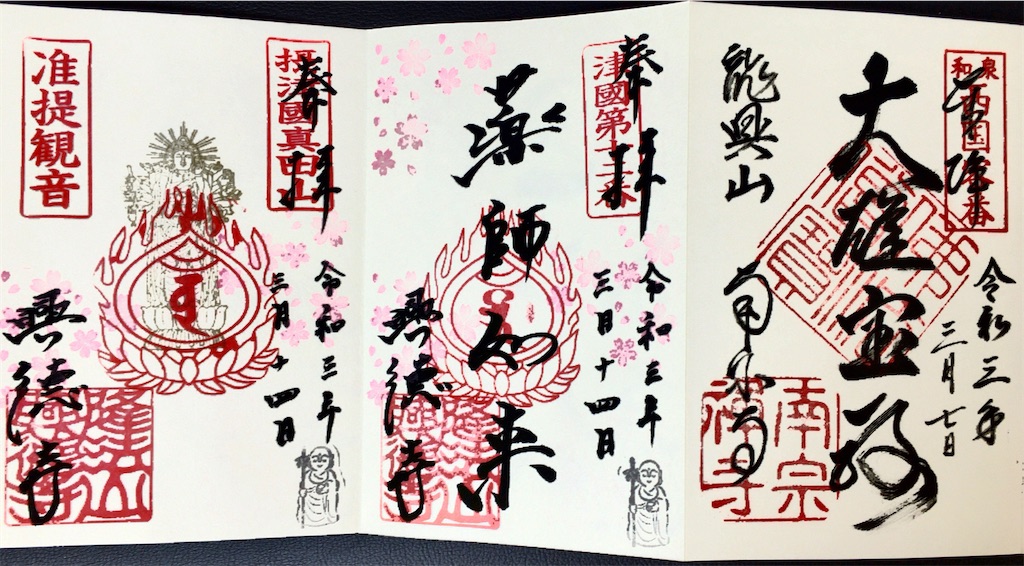 令和三年
三月七日
大雄宝殿
龍興山
南宗寺
南宗
禅寺
奉拝
令和三年
三月十四日
薬師如来
興徳寺
奉拝
摂津國真田山
令和三年
三月十四日
准提観音
興徳寺